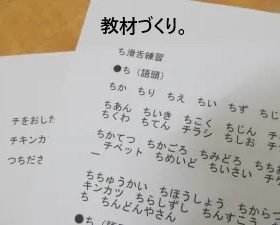 教材づくり。
ち滑舌練習
●ち（語頭）
ちか　ちり　ちえ　ちい　ちず　ちじ
ちあん　ちいき　ちこく　ちじん　チー
ちくわ　ちてん　チラシ　ちしお　チキ
ちかてつ　ちかごろ　ちみどろ　ちちお
チベット　ちめいど　ちいさい　チケ
ちちゅうかい　ちほうしょう　ちからづ
キンカツ　ちらしずし　ちんすこう
ち　ちんどんやさん
●ち（語
チをおした
チキンカ
つちださ